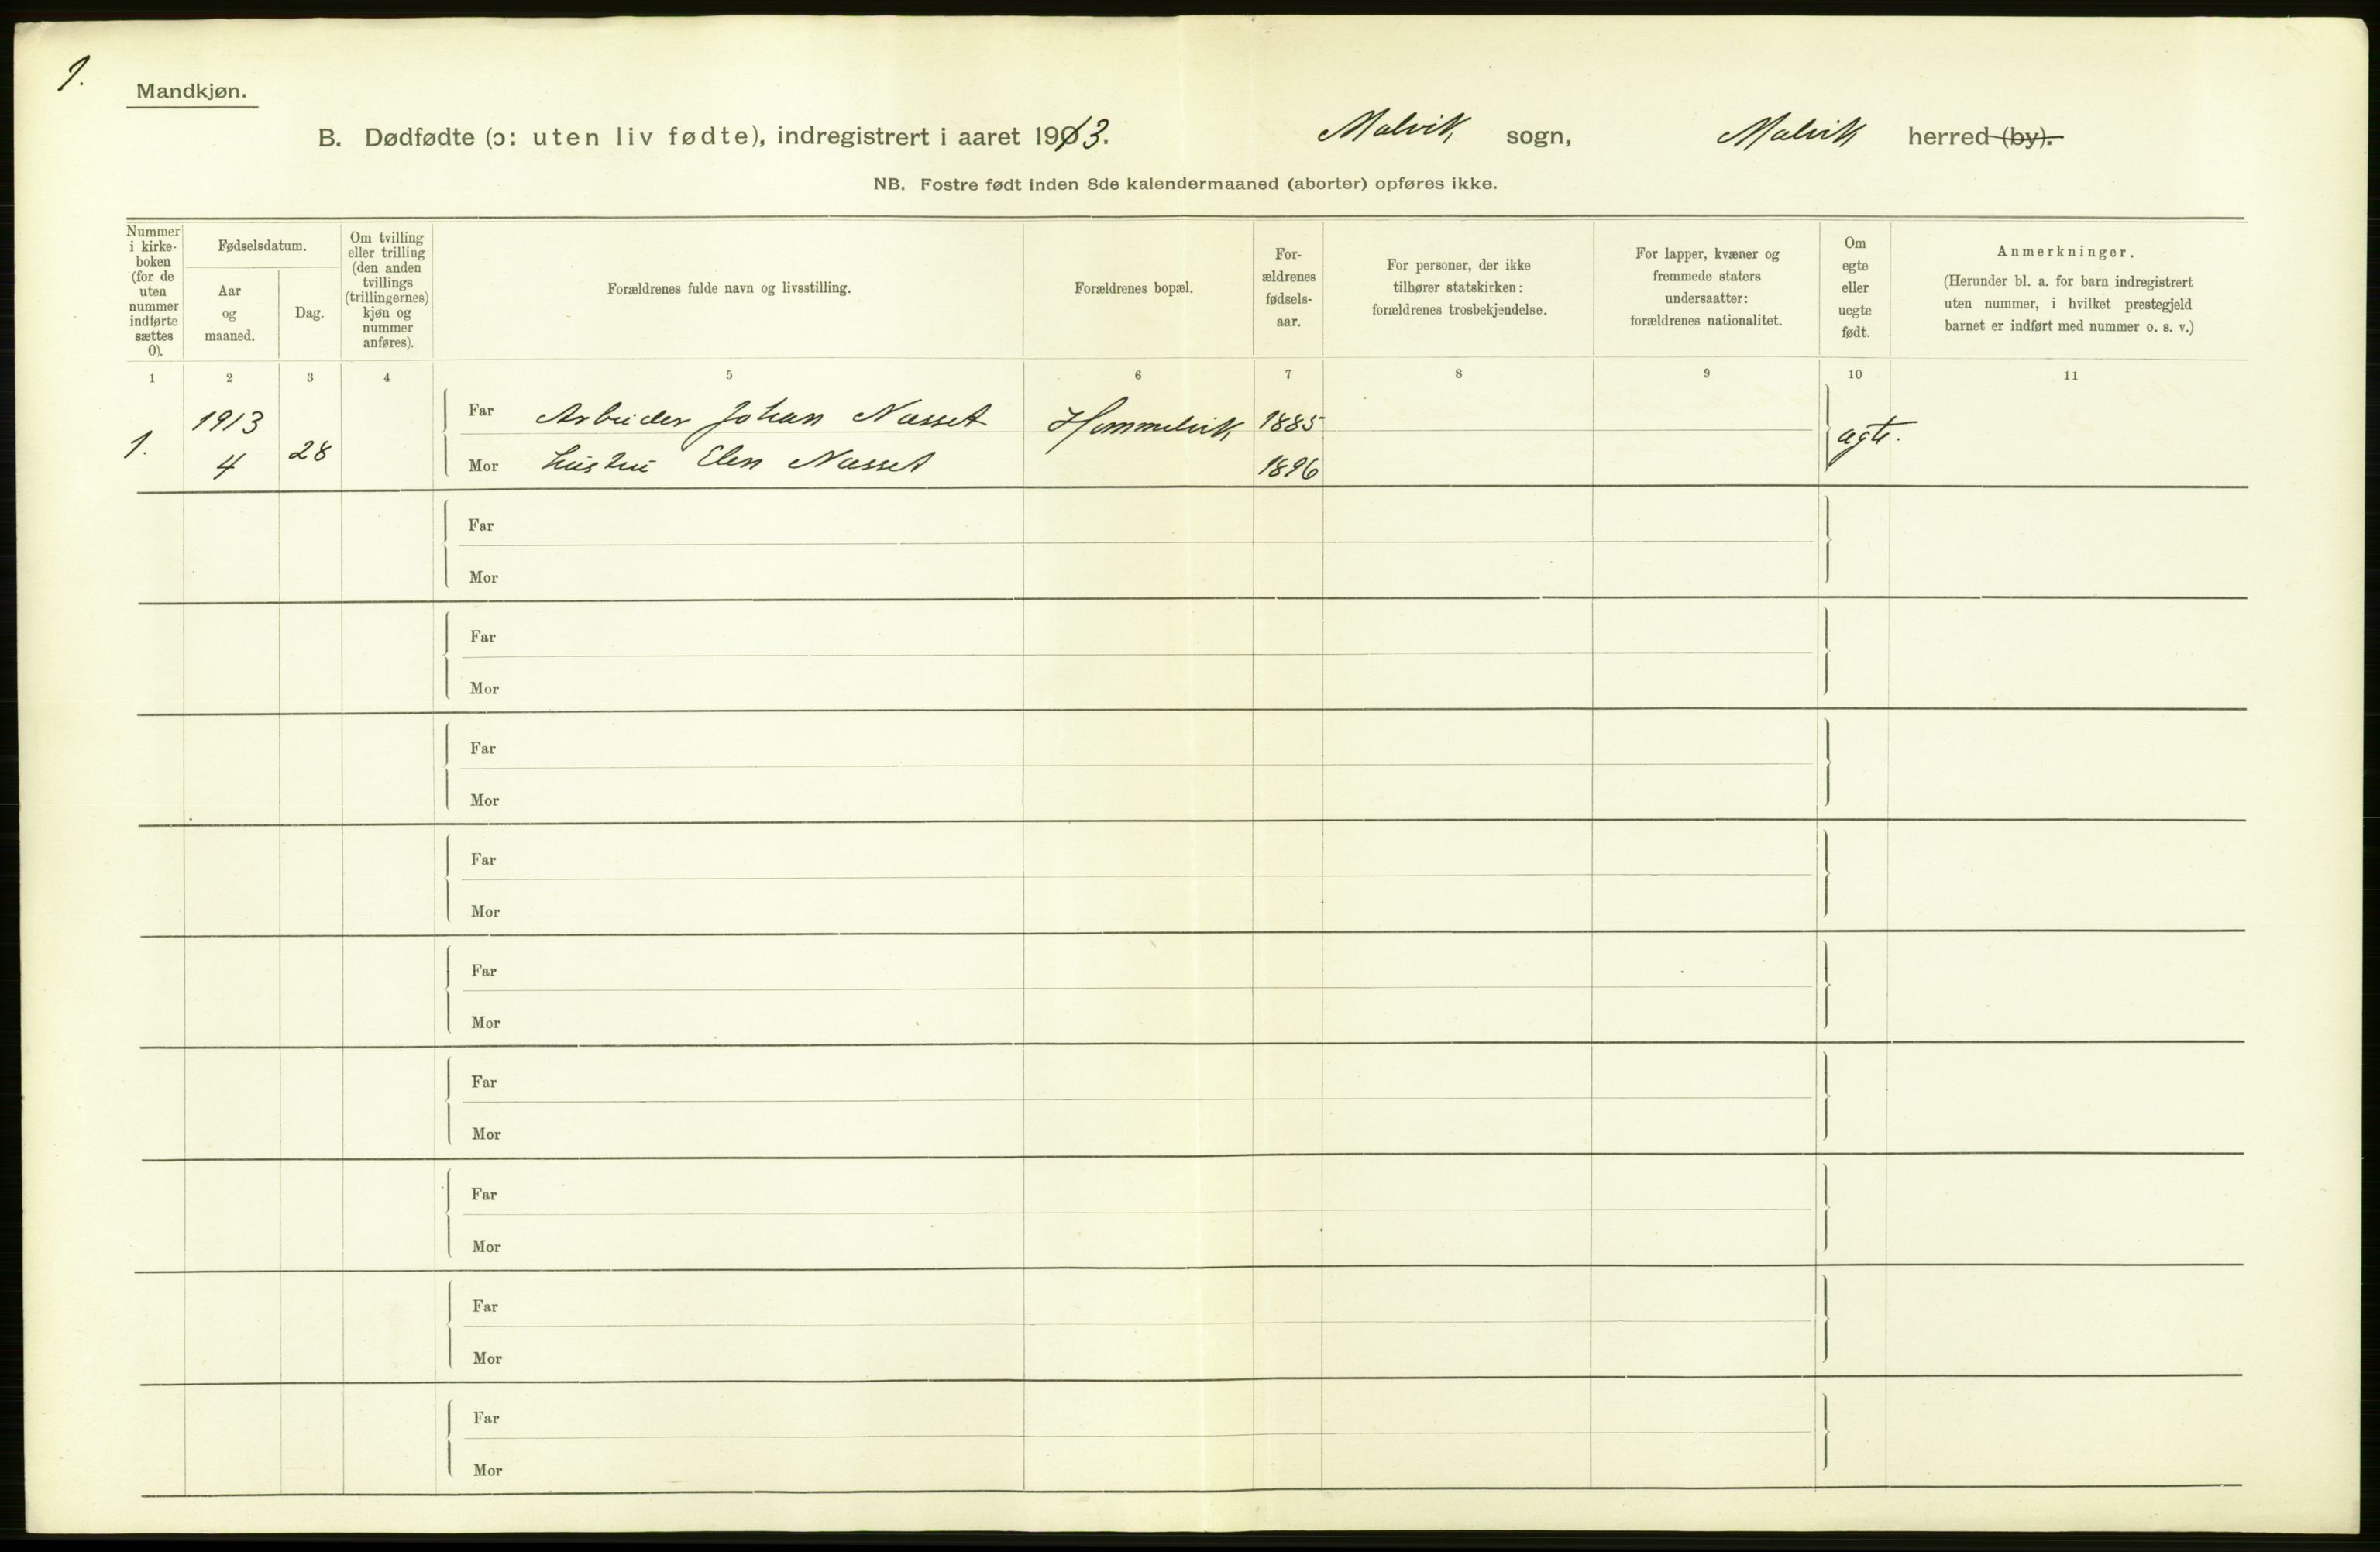 1.
Mandkjøn.
B. Dødfødte (ɔ: uten liv fødte), indregistrert i aaret 1913. Malvik sogn, Malvik herred (by).
NB. Fostre født inden 8de kalendermaaned (aborter) opføres ikke.
Nummer i kirke- boken (for de uten nummer indførte sættes 0).
Fødselsdatum.
Aar og maaned.
Dag.
Om tvilling eller trilling (den anden tvillings (trillingernes) kjøn og nummer anføres).
Forældrenes fulde navn og livsstilling.
Forældrenes bopæl.
For- ældrenes fødsels- aar.
For personer, der ikke tilhører statskirken: forældrenes trosbekjendelse.
For lapper, kvæner og fremmede staters undersaatter: forældrenes nationalitet.
Om egte eller uegte født.
Anmerkninger.
(Herunder bl. a. for barn indregistrert uten nummer, i hvilket prestegjeld barnet er indført med nummer o. s. v.)
1 2 3 4 5 6 7 8 9 10 11
1. 1913 4 28 Far Arbeider Johan Næsset Hommelvik 1885 ægte.
Mor hustru Elen Næsset 1896
Far
Mor
Far
Mor
Far
Mor
Far
Mor
Far
Mor
Far
Mor
Far
Mor
Far
Mor
Far
Mor